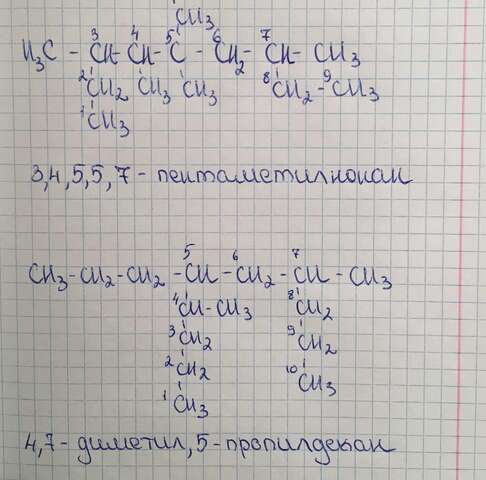 CH3
3 4 5 6 7
H3C - CH - CH - C - CH2 - CH - CH3
2 CH2 CH3 CH3 8 CH2 - 9 CH3
1 CH3
3,4,5,5,7 - пентаметилнонан
5 6 7
CH3 - CH2 - CH2 - CH - CH2 - CH - CH3
4 CH - CH3 8 CH2
3 CH2 9 CH2
2 CH2 10 CH3
1 CH3
4,7 - диметил, 5 - пропилдекан